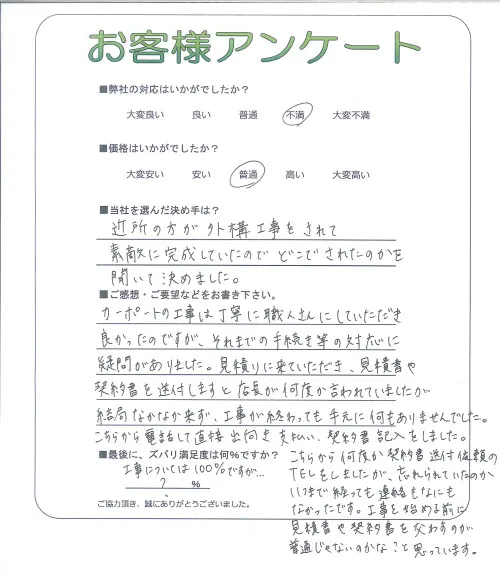 お客様アンケート
■弊社の対応はいかがでしたか？
大変良い 良い 普通 不満 大変不満
■価格はいかがでしたか？
大変安い 安い 普通 高い 大変高い
■当社を選んだ決め手は？
近所の方が外構工事をされて
素敵に完成していたので どこでされたのかを
聞いて決めました。
■ご感想・ご要望などをお書き下さい。
カーポートの工事は丁寧に職人さんにしていただき
良かったのですが、それまでの手続き等の対応に
疑問がありました。見積りに来ていただき、見積書や
契約書を送付しますと店長が何度か言われていましたが
結局なかなか来ず、工事が終わっても手元に何もありませんでした。
こちらから電話して直接出向き支払い、契約書記入をしました。
■最後に、ズバリ満足度は何%ですか？
工事については100%ですが…
? %
ご協力頂き、誠にありがとうございました。
こちらから何度か契約書送付依頼の
TELをしましたが、忘れられていたのか
いつまで経っても連絡もなにも
なかったです。工事を始める前に
見積書や契約書を交わすのが
普通じゃないのかな？と思っています。